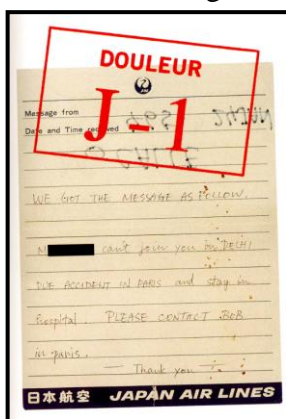 DOULEUR
J-1
JAL
Message from
Date and Time received
WE GOT THE MESSAGE AS FOLLOW.
M can't join you in DELHI
DUE ACCIDENT IN PARIS and stay in
hospital. PLEASE CONTACT BOB
in paris.
— Thank you —
日本航空 JAPAN AIR LINES